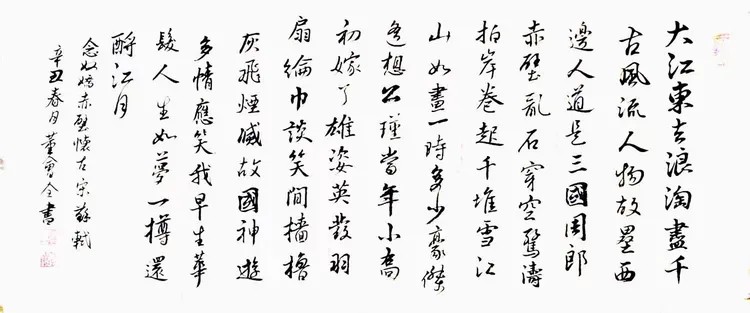 大江東去浪淘盡千
古風流人物故壘西
邊人道是三國周郎
赤壁乱石穿空驚濤
拍岸卷起千堆雪江
山如畫一時多少豪傑
遙想公瑾當年小喬
初嫁了雄姿英發羽
扇綸巾談笑間檣櫓
灰飛煙滅故國神遊
多情應笑我早生華
髮人生如夢一樽還
酹江月
念奴嬌赤壁懷古宋蘇軾
辛丑春月董會全書